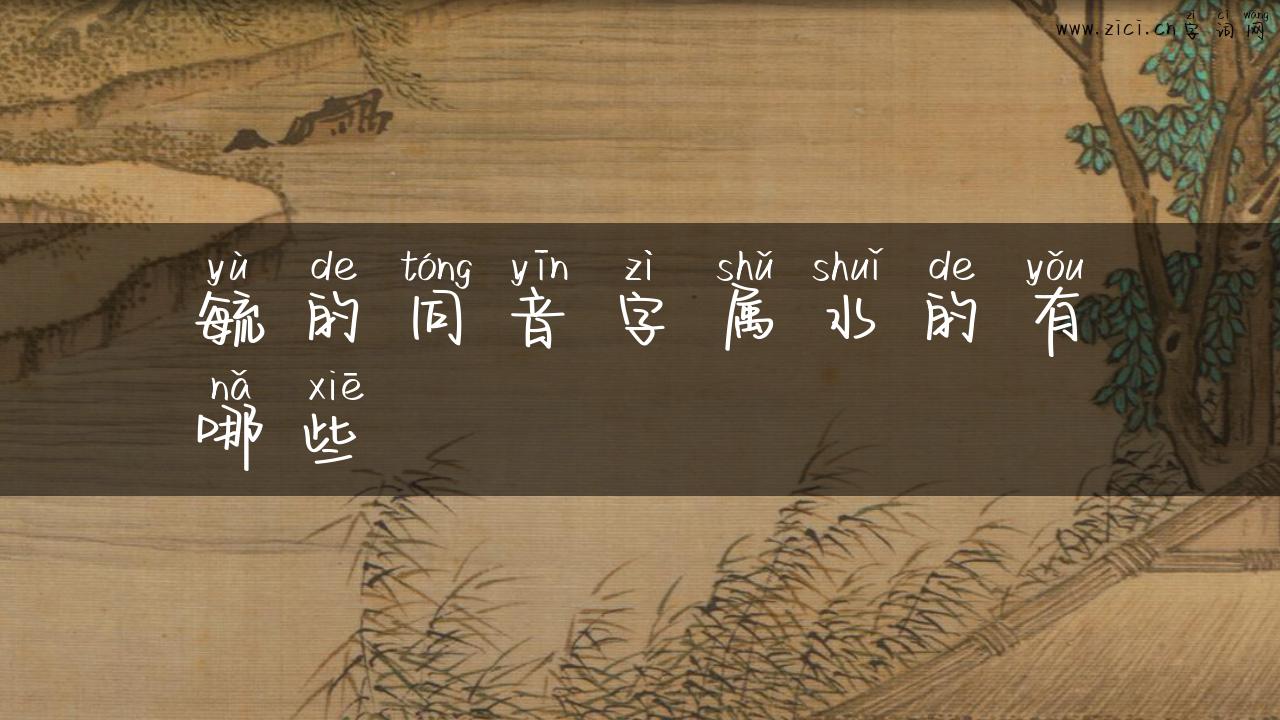 zì cí wǎng
www.zici.cn字词网
yù de tóng yīn zì shǔ shuǐ de yǒu
毓的同音字属水的有
nǎ xiē
哪些